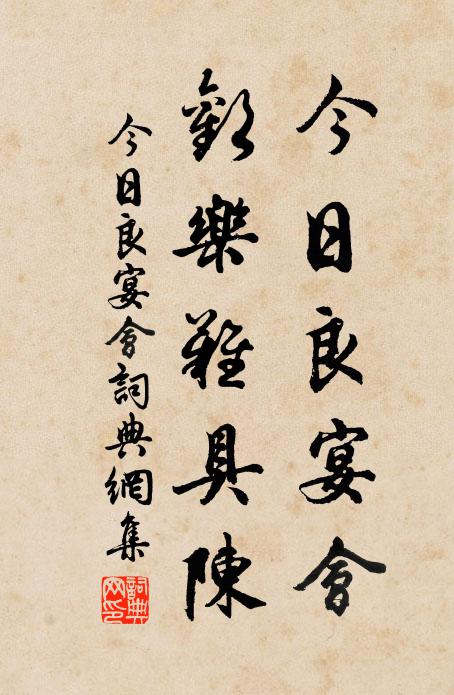 今日良宴會
歡樂難具陳
今日良宴會詞典網集
詞典網印